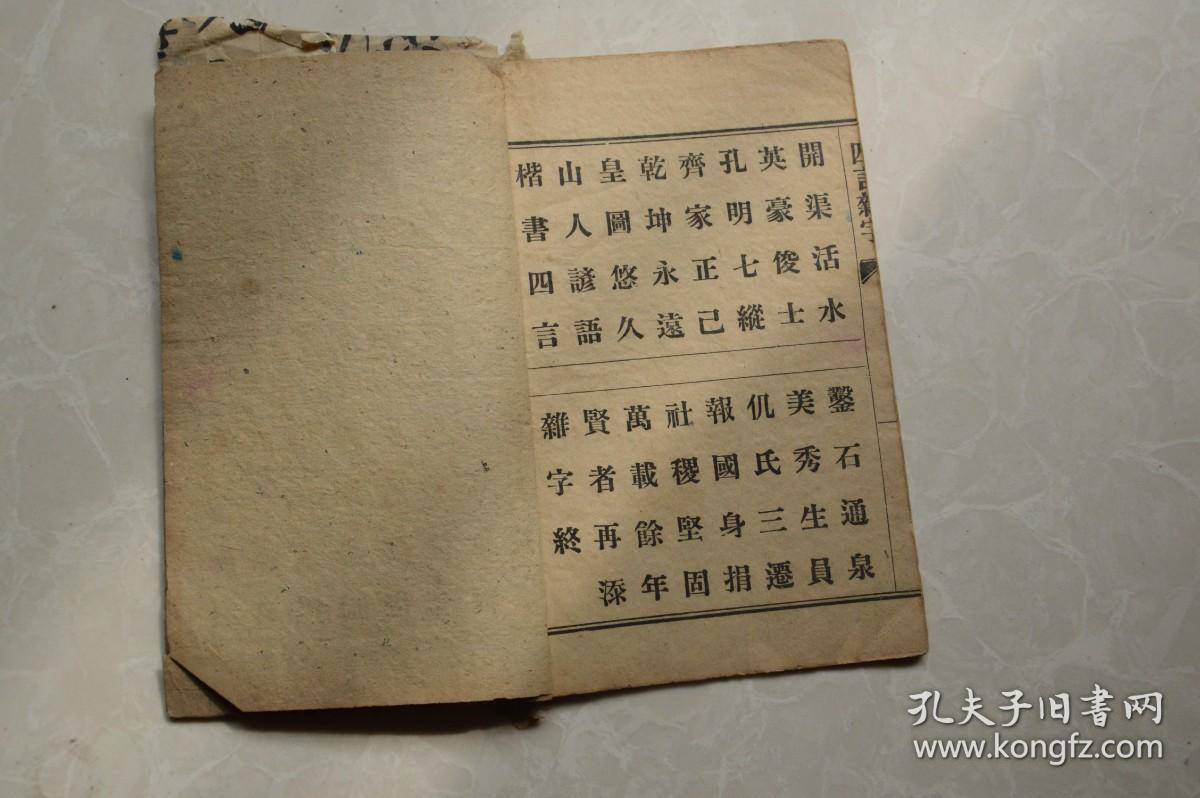 四言雜字
開渠活水 鑿石通泉
英豪俊士 美秀生員
孔明七縱 仉氏三遷
齊家正己 報國身捐
乾坤永遠 社稷堅固
皇圖悠久 萬載餘年
山人諺語 賢者再添
楷書四言 雜字終
孔夫子旧書网
www.kongfz.com